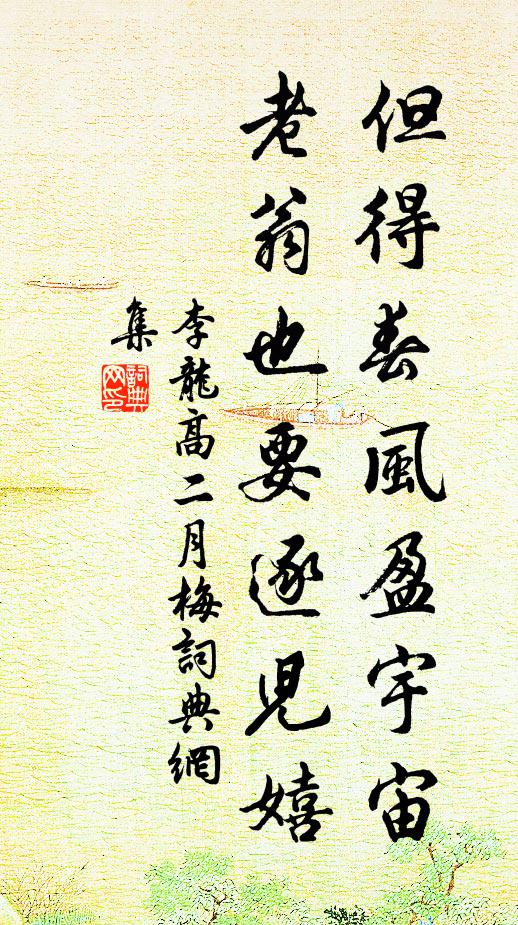 但得春風盈宇宙
老翁也要逐兒嬉
李龍高二月梅詞典網
集
詞典
网印